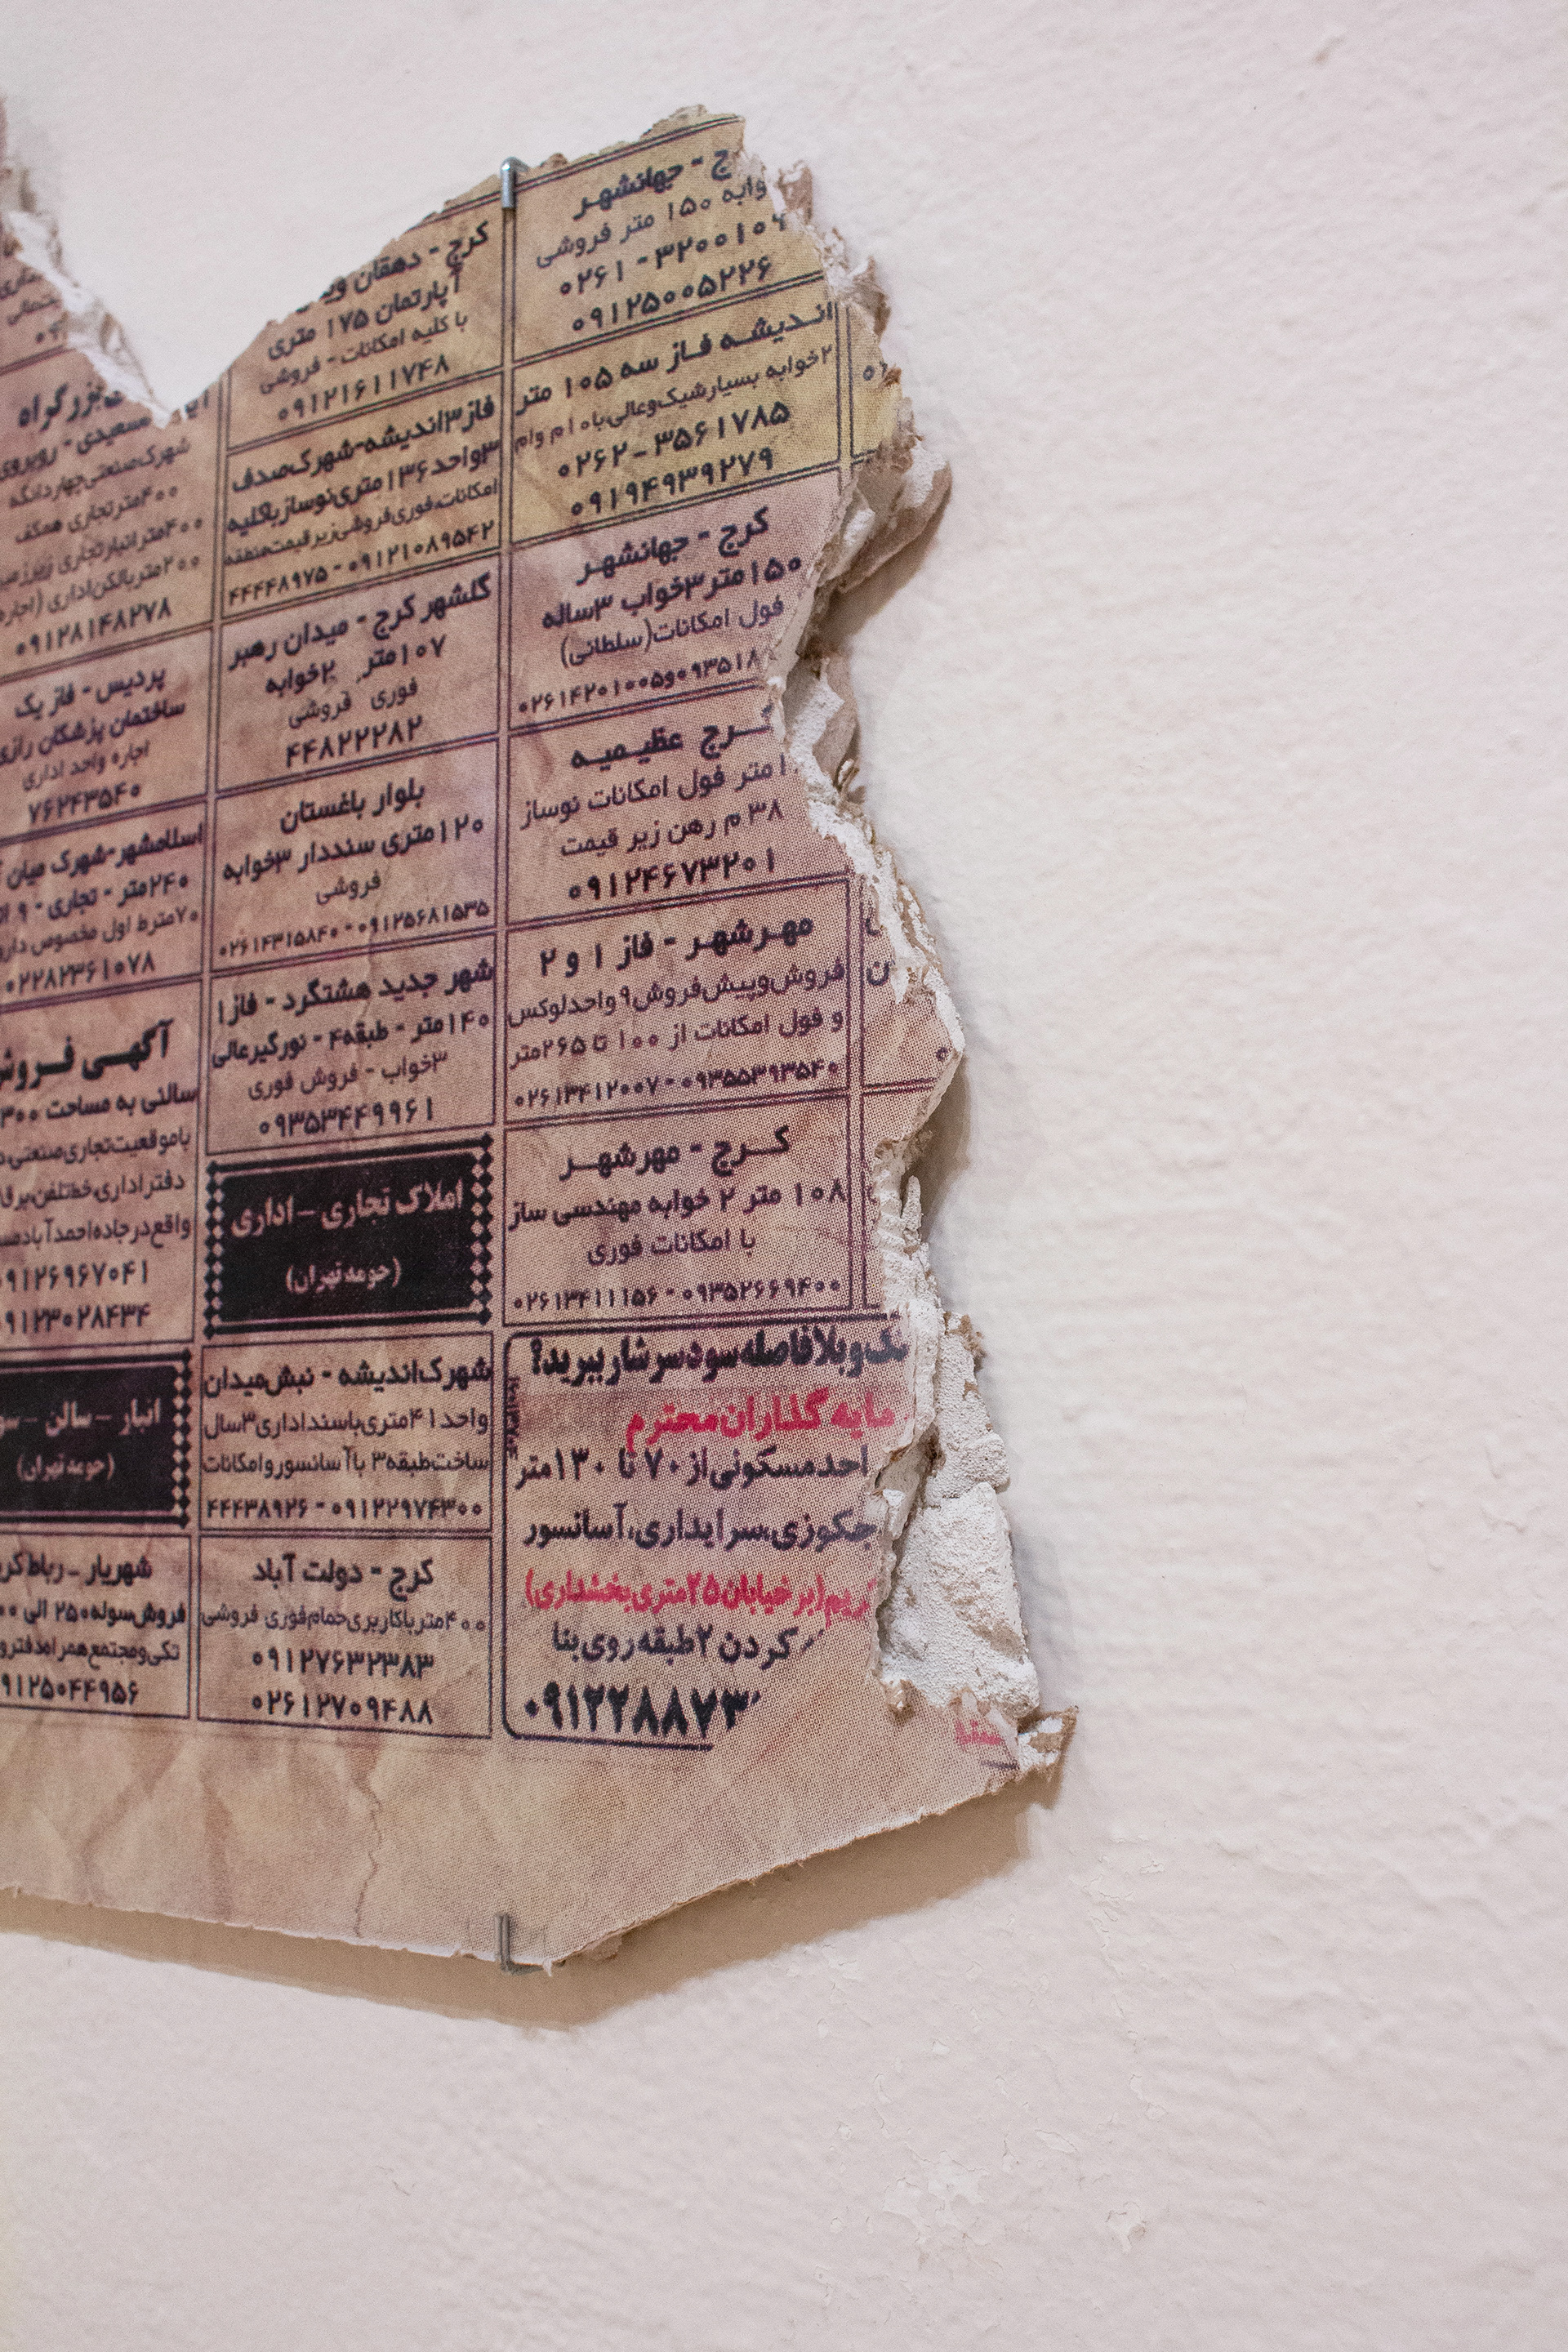 ج - جهانشهر
وابه ۱۵۰ متر فروشی
۰۲۶۱ - ۳۲۰۰۱۰۹
۰۹۱۲۵۰۰۵۲۲۶
اندیشه فاز سه ۱۰۵ متر
۲خوابه بسیارشیک‌وعالی‌با۱۰م وام
۰۲۶۲ - ۳۵۶۱۷۸۵
۰۹۱۹۴۹۳۹۲۷۹
کرج - جهانشهر
۱۵۰متر۳خواب ۳ساله
فول امکانات(سلطانی)
۰۲۶۱۴۲۰۱۰۰۵و۰۹۳۵۱۸
کرج عظیمیه
متر فول امکانات نوساز
۳۸ م رهن زیر قیمت
۰۹۱۲۴۶۷۳۲۰۱
مهرشهر - فاز ۱ و ۲
فروش‌وپیش‌فروش۹واحدلوکس
و فول امکانات از ۱۰۰ تا ۲۶۵متر
۰۲۶۱۳۴۱۲۰۰۷ - ۰۹۳۵۵۳۹۳۵۴۰
کرج - مهرشهر
۱۰۸ متر ۲ خوابه مهندسی ساز
با امکانات فوری
۰۲۶۱۳۴۱۱۱۵۶ - ۰۹۳۵۲۶۶۹۴۰۰
ک‌وبلافاصله‌سودسرشارببرید؟
مایه گذاران‌محترم
احدمسکونی‌از ۷۰ تا ۱۳۰متر
جکوزی،سرایداری،آسانسور
(برخیابان۲۵متری‌بخشداری)
کردن ۲طبقه‌روی‌بنا
۰۹۱۲۲۸۸۷۳
کرج - دهقان
آپارتمان ۱۷۵ متری
با کلیه امکانات - فروشی
۰۹۱۲۱۶۱۱۷۴۸
فاز۳اندیشه-شهرک‌صدف
۳واحد۱۳۶متری‌نوسازباکلیه
امکانات،فوری‌فروشی‌زیرقیمت‌منطقه
۴۴۴۴۸۹۷۵ - ۰۹۱۲۱۰۸۹۵۴۲
گلشهر کرج - میدان رهبر
۱۰۷متر ۲خوابه
فوری فروشی
۴۴۸۲۲۲۸۲
بلوار باغستان
۱۲۰متری سنددار ۳خوابه
فروشی
۰۲۶۱۴۳۱۵۸۴۰ - ۰۹۱۲۵۶۸۱۵۳۵
شهر جدید هشتگرد - فاز۱
۱۴۰متر - طبقه۴ - نورگیرعالی
۳خواب - فروش فوری
۰۹۳۵۳۴۴۹۹۶۱
املاک تجاری - اداری
(حومه تهران)
شهرک‌اندیشه - نبش‌میدان
واحد۴۱متری‌باسنداداری۳سال
ساخت‌طبقه۳ باآسانسورو‌امکانات
۴۴۴۳۸۹۲۶ - ۰۹۱۲۲۹۷۴۳۰۰
کرج - دولت آباد
۴۰۰متر‌باکاربری‌حمام‌فوری فروشی
۰۹۱۲۷۶۳۲۳۸۳
۰۲۶۱۲۷۰۹۴۸۸
بزرگراه
سعیدی - روبروی
شهرک‌صنعتی‌چهاردانگه
۴۰۰متر‌تجاری همکف
۴۰۰متر‌انبارتجاری
۲۰۰متر‌بالکن‌اداری
۰۹۱۲۸۱۴۸۲۷۸
پردیس - فاز یک
ساختمان پزشکان رازی
اجاره واحد اداری
۷۶۲۴۳۵۴۰
اسلامشهر-شهرک میان
۲۴۰متر - تجاری - ۹
۷۰مترط اول مخصوص
۰۲۲۸۲۳۶۱۰۷۸
آگهی فروش
سالنی به مساحت ۳۰۰
باموقعیت‌تجاری‌صنعتی
دفتراداری،خط‌تلفن،برق
واقع‌درجاده‌احمدآباد
۰۹۱۲۶۹۶۷۰۴۱
۹۱۲۳۰۲۸۴۳۴
انبار - سالن - سو
(حومه تهران)
شهریار - رباط‌کر
فروش‌سوله۲۵۰ الی
تکی‌ومجتمع‌همراه‌دفترو
۹۱۲۵۰۴۴۹۵۶